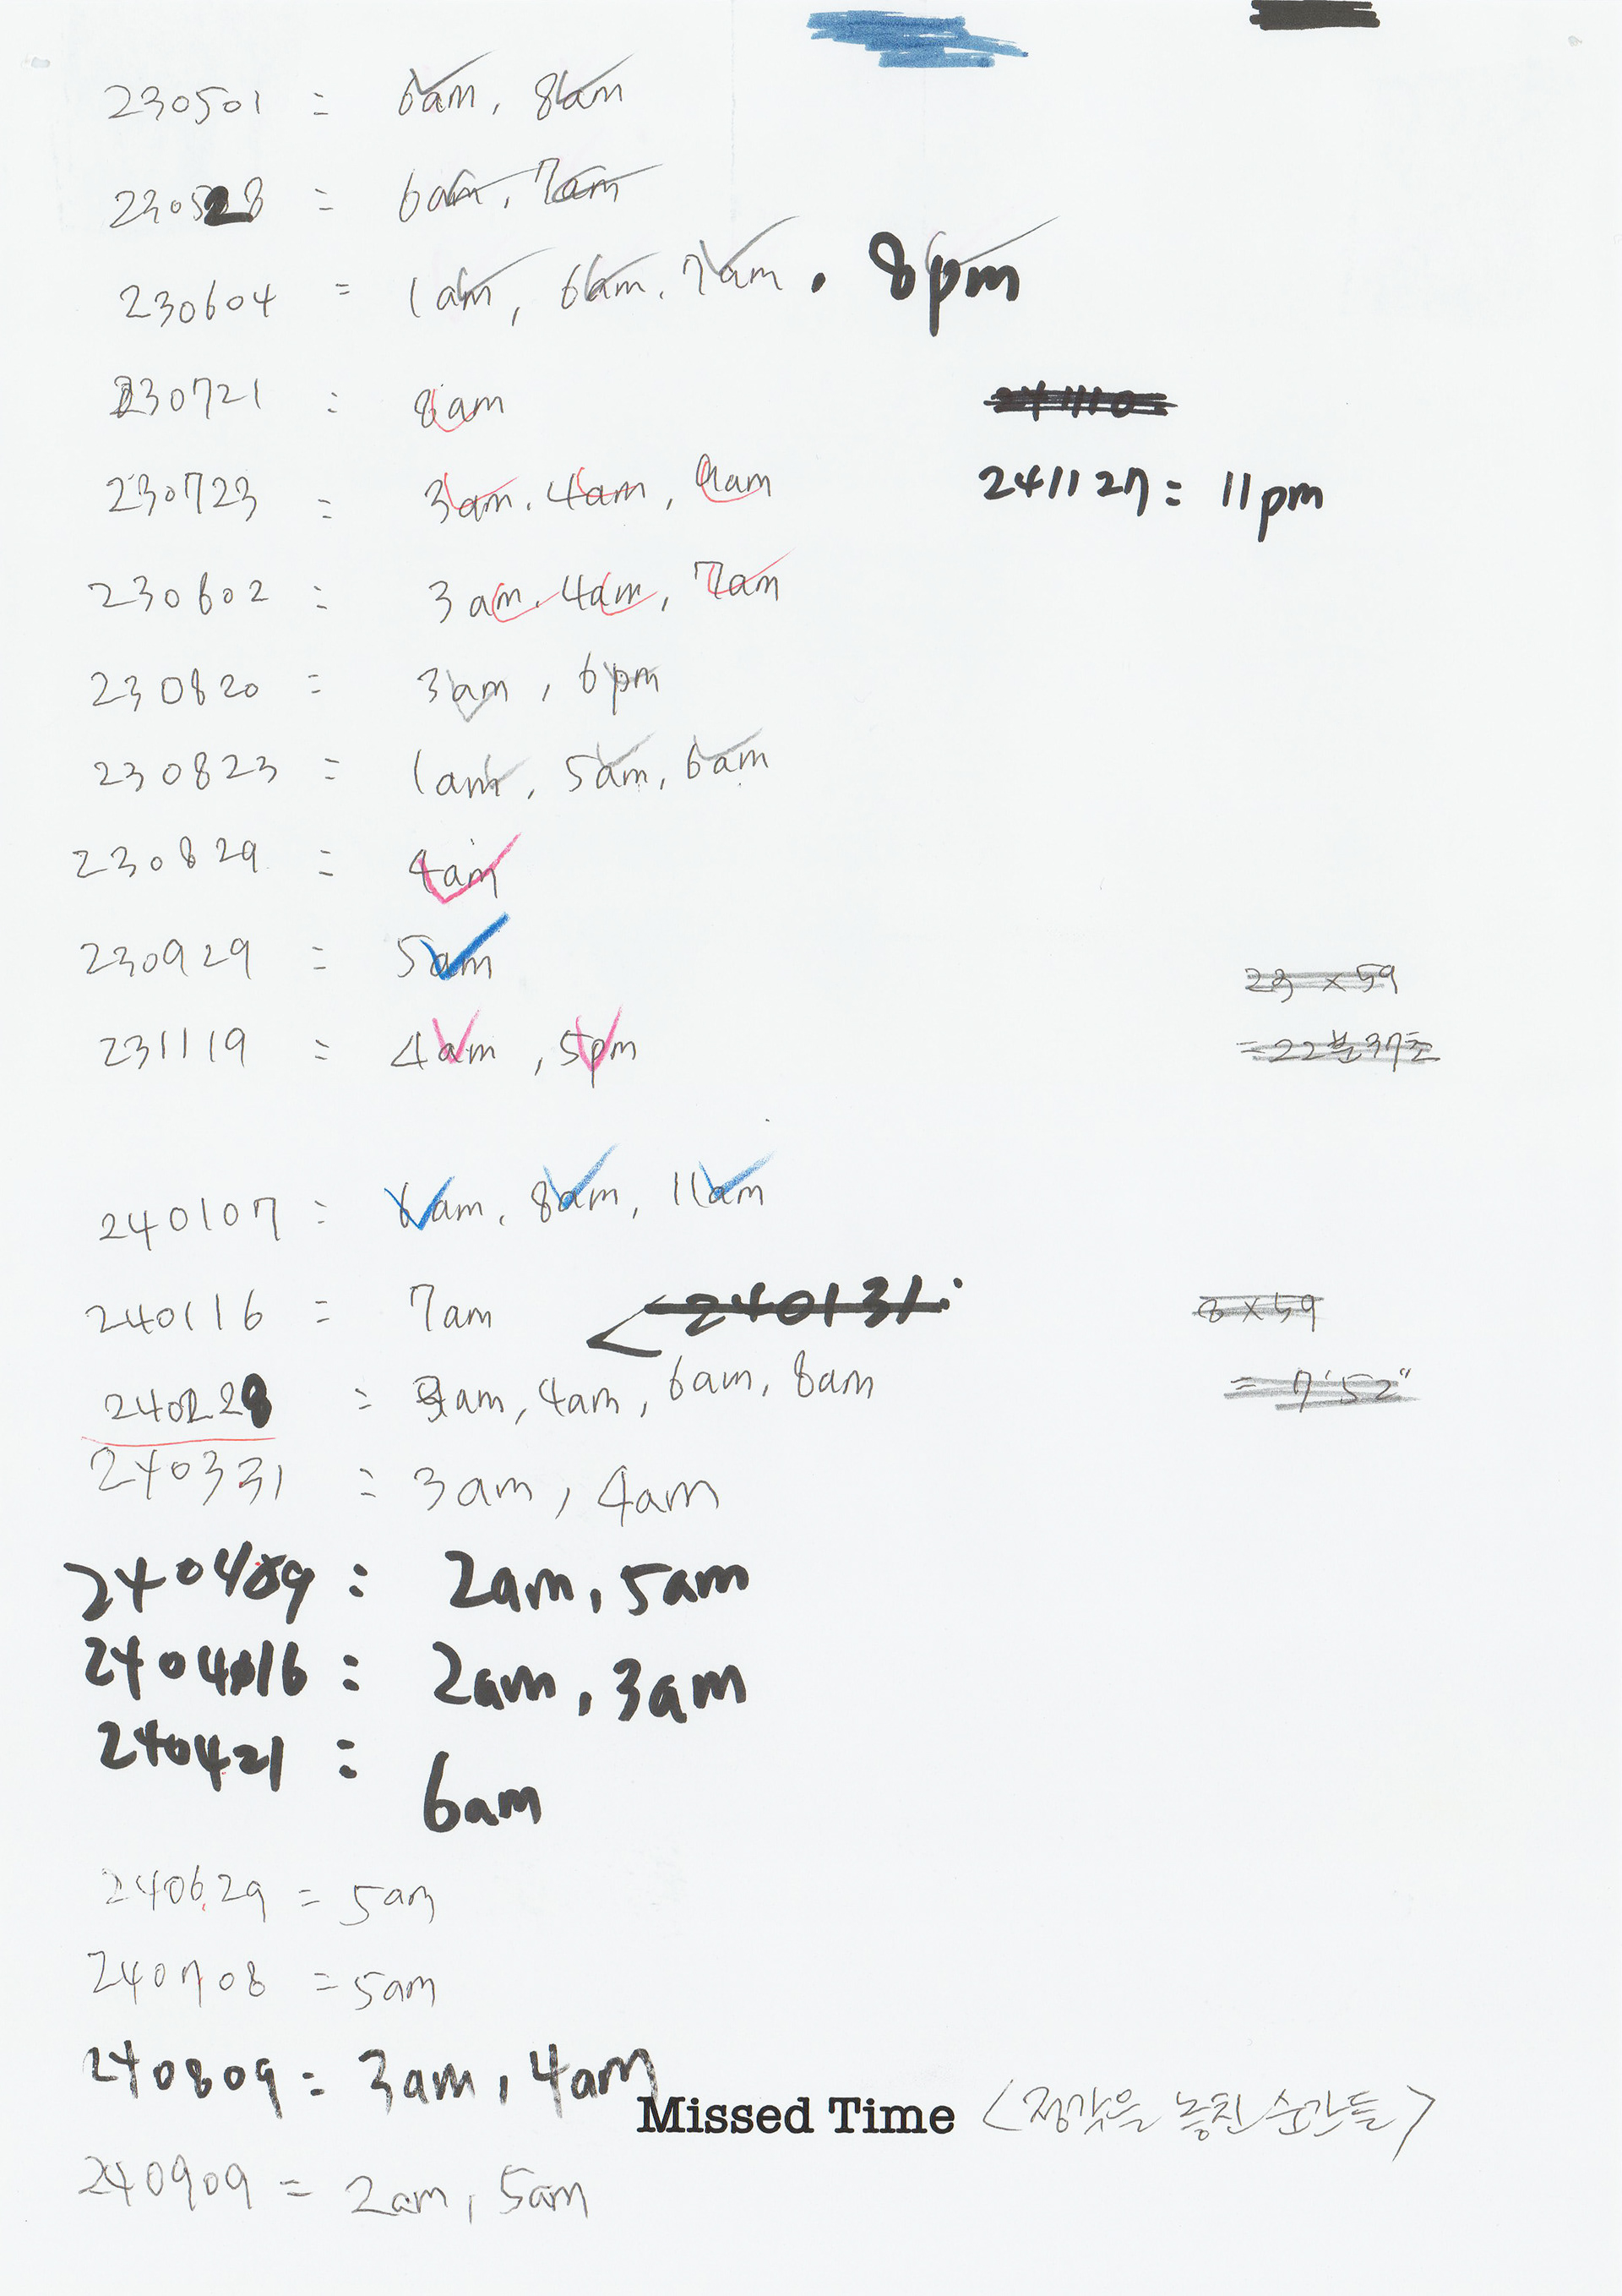 230501 = 6am, 8am
230528 = 6am, 7am
230604 = 1am, 6am, 7am, 8pm
230721 : 8am
241110:
230723 = 3am, 4am, 9am
241127: 11pm
230602 : 3am, 4am, 7am
230820 = 3am, 6pm
230823 = 1am, 5am, 6am
230829 = 4am
230929 = 5am
23 x 59
231119 = 4am, 5pm
=22분37초
240107 = 6am, 8am, 11am
240116 = 7am
240131:
8 x 59
240228 = 4am, 6am, 8am
= 7'52"
240331 = 3am, 4am
240409 : 2am, 5am
240416 : 2am, 3am
240421 : 6am
240629 = 5am
240708 = 5am
240809 = 3am, 4am
Missed Time <정각을 놓친 순간들>
240909 = 2am, 5am